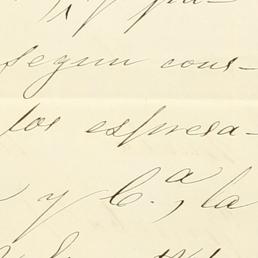 segun cons-
los espresa-
y C.ª, la